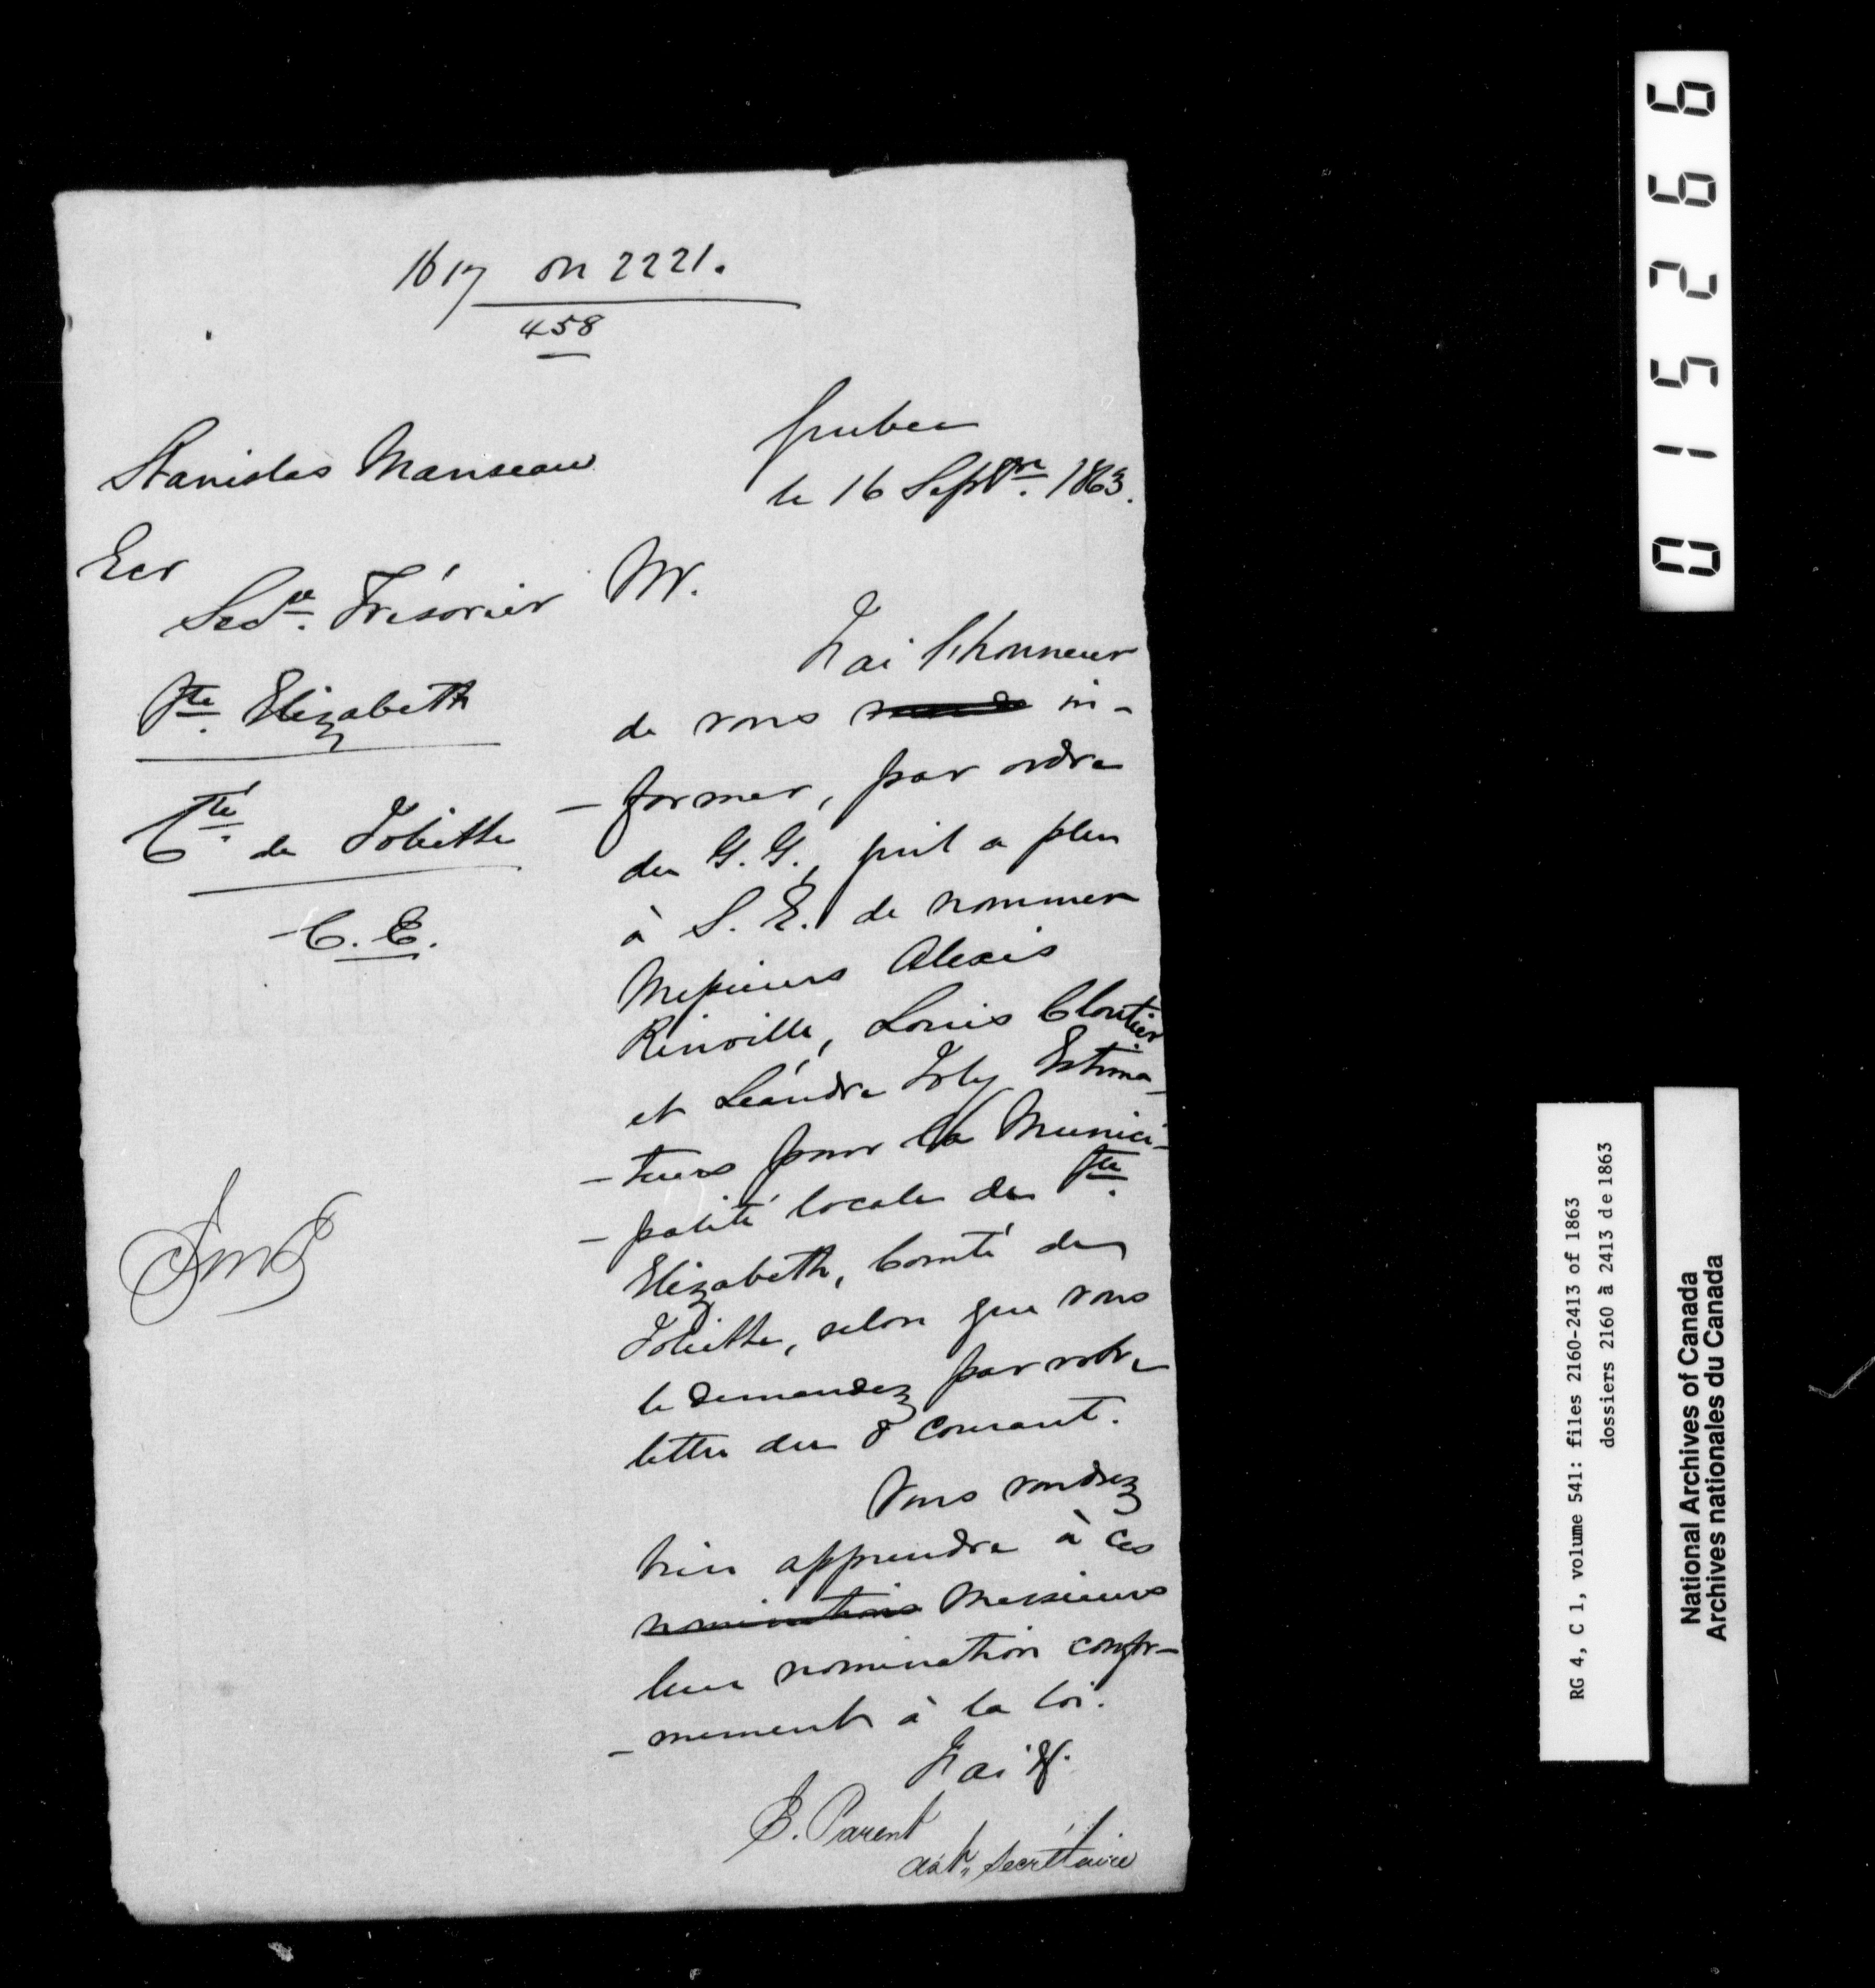 1617 on 2221.
458
Stanislas Manseau
Ecr
Secre. Trésorier
Ste Elizabeth
Cté. de Joliette
C. E.
Québec
le 16 Septbre. 1863.
Mr.
J'ai l'honneur
de vous in-
-former, par ordre
du G. G., qu'il a plu
à S. E. de nommer
Messieurs Alexis
Rinville, Louis Cloutier
et Léandre Joly Estima-
-teurs pour la Munici-
-palité locale de Ste.
Elizabeth, Comté de
Joliette, selon que vous
le demandez par votre
lettre du 8 courant.
Vous voudrez
bien apprendre à ces
nominations Messieurs
leur nomination confor-
-mement à la loi.
J'ai &.
E. Parent
asst. secrétaire
015266
RG 4, C 1, volume 541: files 2160-2413 of 1863
dossiers 2160 à 2413 de 1863
National Archives of Canada
Archives nationales du Canada